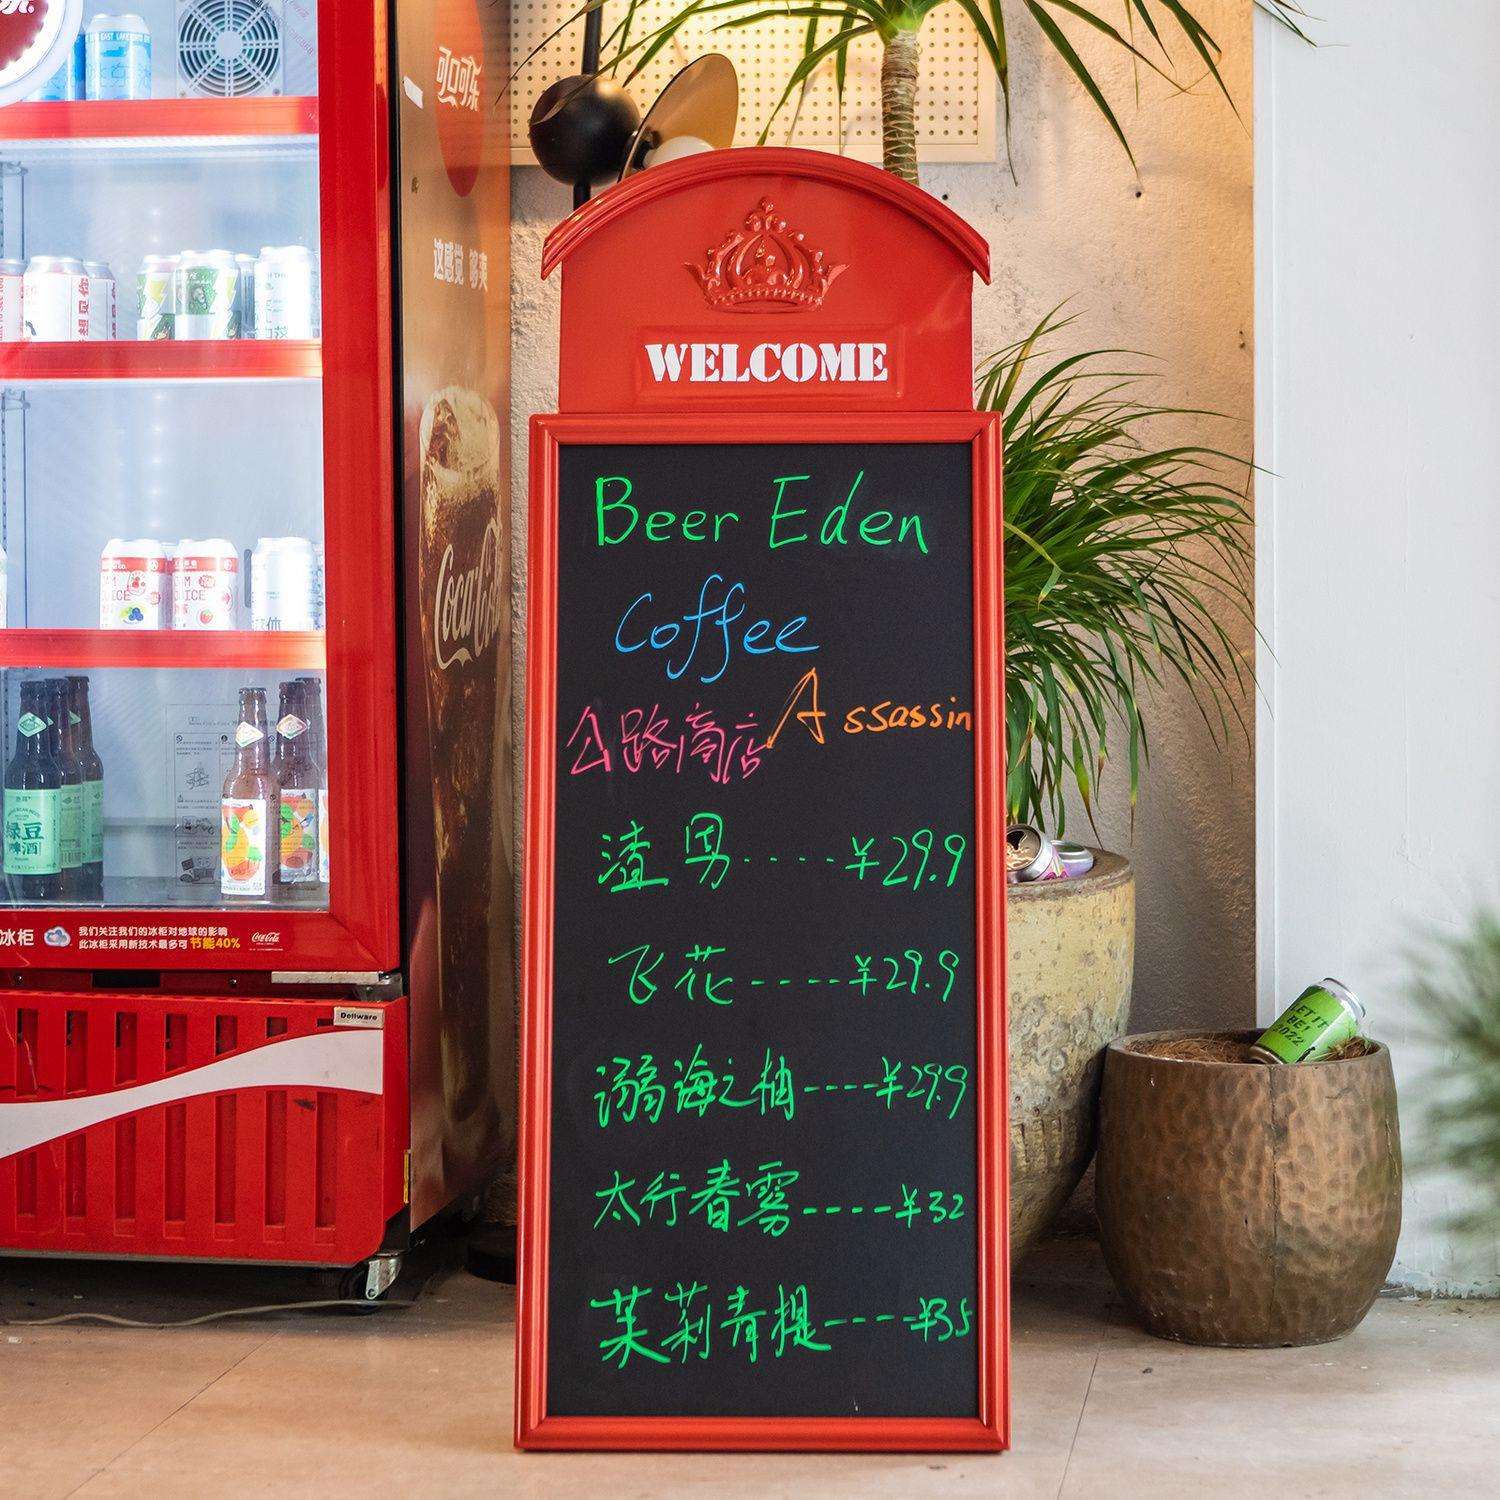 可口可乐
这感觉 够爽
Coca-Cola
WELCOME
Beer Eden
Coffee
公路商店 Assassin
渣男····¥29.9
飞花----¥29.9
溺海之柚----¥29.9
太行春雾----¥32
茉莉青提----¥35
绿豆
啤酒
冰柜
我们关注我们的冰柜对地球的影响
此冰柜采用新技术最多可节能40%
Coca-Cola
Dellware
LET IT
BE!
2022